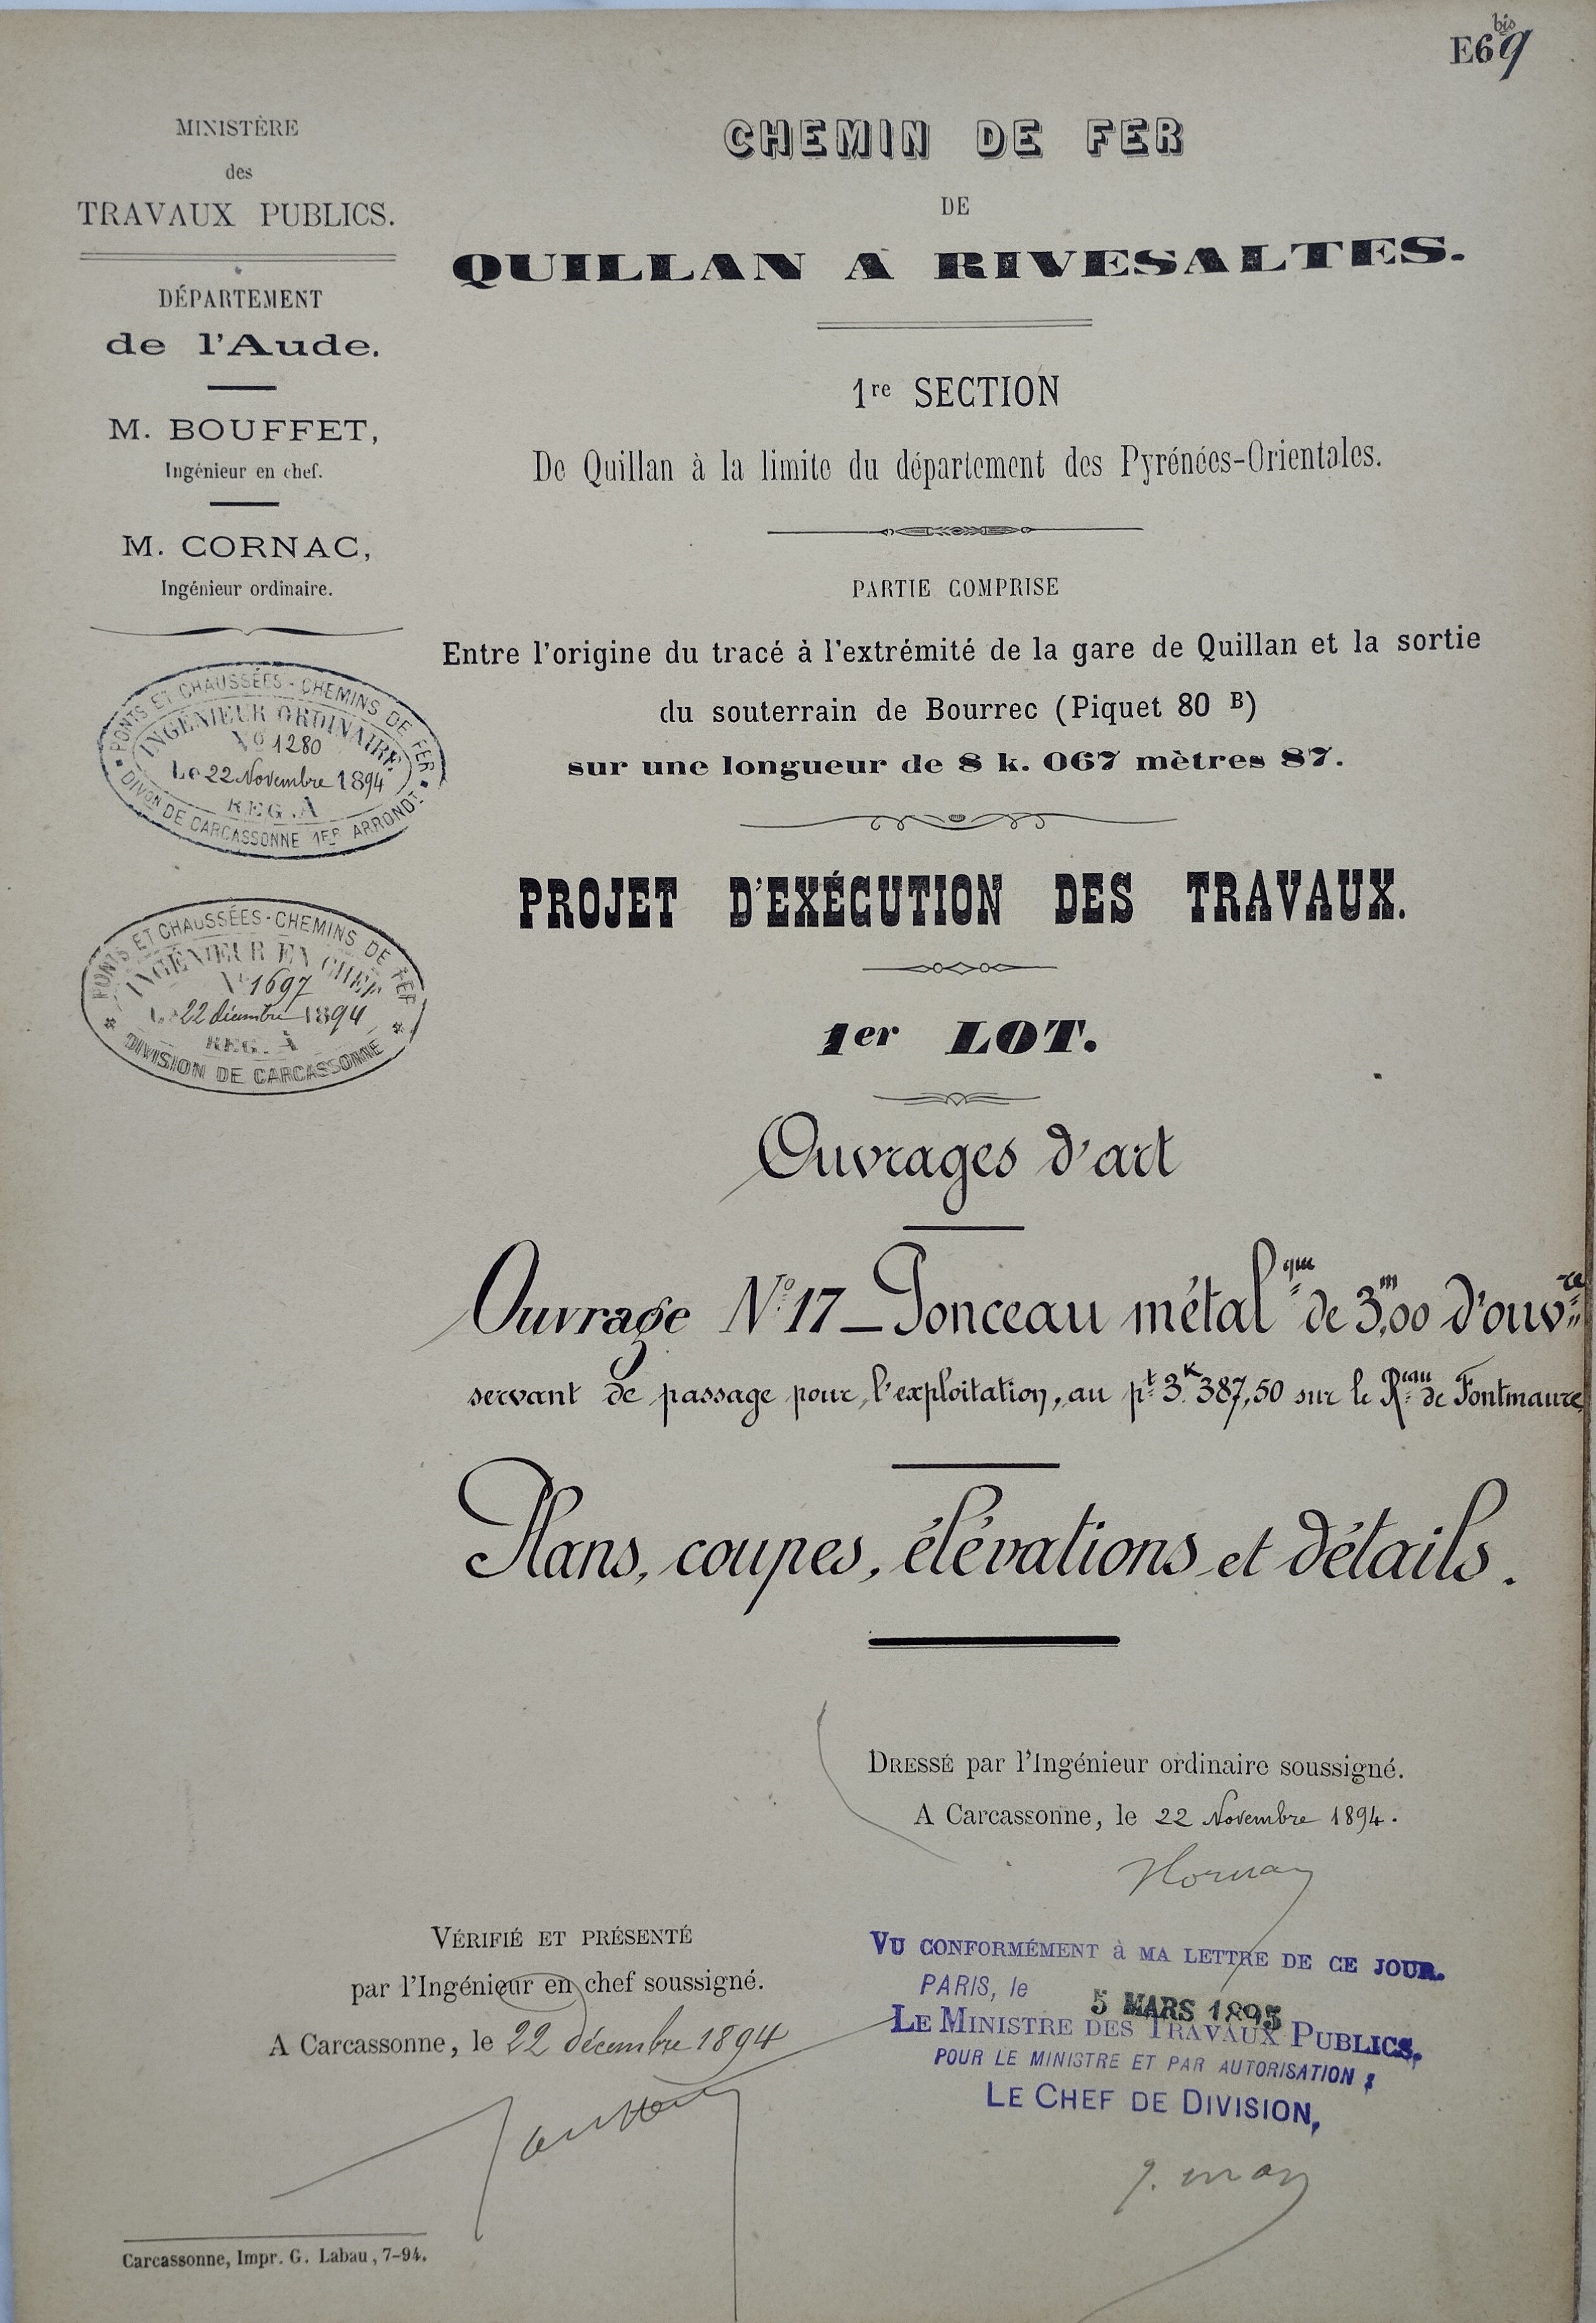 E69 bis
MINISTÈRE
des
TRAVAUX PUBLICS.
DÉPARTEMENT
de l'Aude.
M. BOUFFET,
Ingénieur en chef.
M. CORNAC,
Ingénieur ordinaire.
PONTS ET CHAUSSÉES - CHEMINS DE FER
INGÉNIEUR ORDINAIRE
No 1280
Le 22 Novembre 1894
REG. A
DIVon DE CARCASSONNE 1ER ARRONDt
PONTS ET CHAUSSÉES - CHEMINS DE FER
INGÉNIEUR EN CHEF
No 1697
Le 22 décembre 1894
REG. A
DIVISION DE CARCASSONNE
CHEMIN DE FER
DE
QUILLAN A RIVESALTES.
1re SECTION
De Quillan à la limite du département des Pyrénées-Orientales.
PARTIE COMPRISE
Entre l'origine du tracé à l'extrémité de la gare de Quillan et la sortie
du souterrain de Bourrec (Piquet 80 B)
sur une longueur de 8 k. 067 mètres 87.
PROJET D'EXÉCUTION DES TRAVAUX.
1er LOT.
Ouvrages d'art
Ouvrage No 17 _ Ponceau métalque de 3m,00 d'ouvre
servant de passage pour l'exploitation, au pt 3K.387,50 sur le Reau de Fontmaure
Plans, coupes, élévations et détails.
DRESSÉ par l'Ingénieur ordinaire soussigné.
A Carcassonne, le 22 Novembre 1894.
VÉRIFIÉ ET PRÉSENTÉ
par l'Ingénieur en chef soussigné.
A Carcassonne, le 22 décembre 1894
VU CONFORMÉMENT à MA LETTRE DE CE JOUR.
PARIS, le 5 MARS 1895
LE MINISTRE DES TRAVAUX PUBLICS.
POUR LE MINISTRE ET PAR AUTORISATION :
LE CHEF DE DIVISION,
Carcassonne, Impr. G. Labau, 7-94.